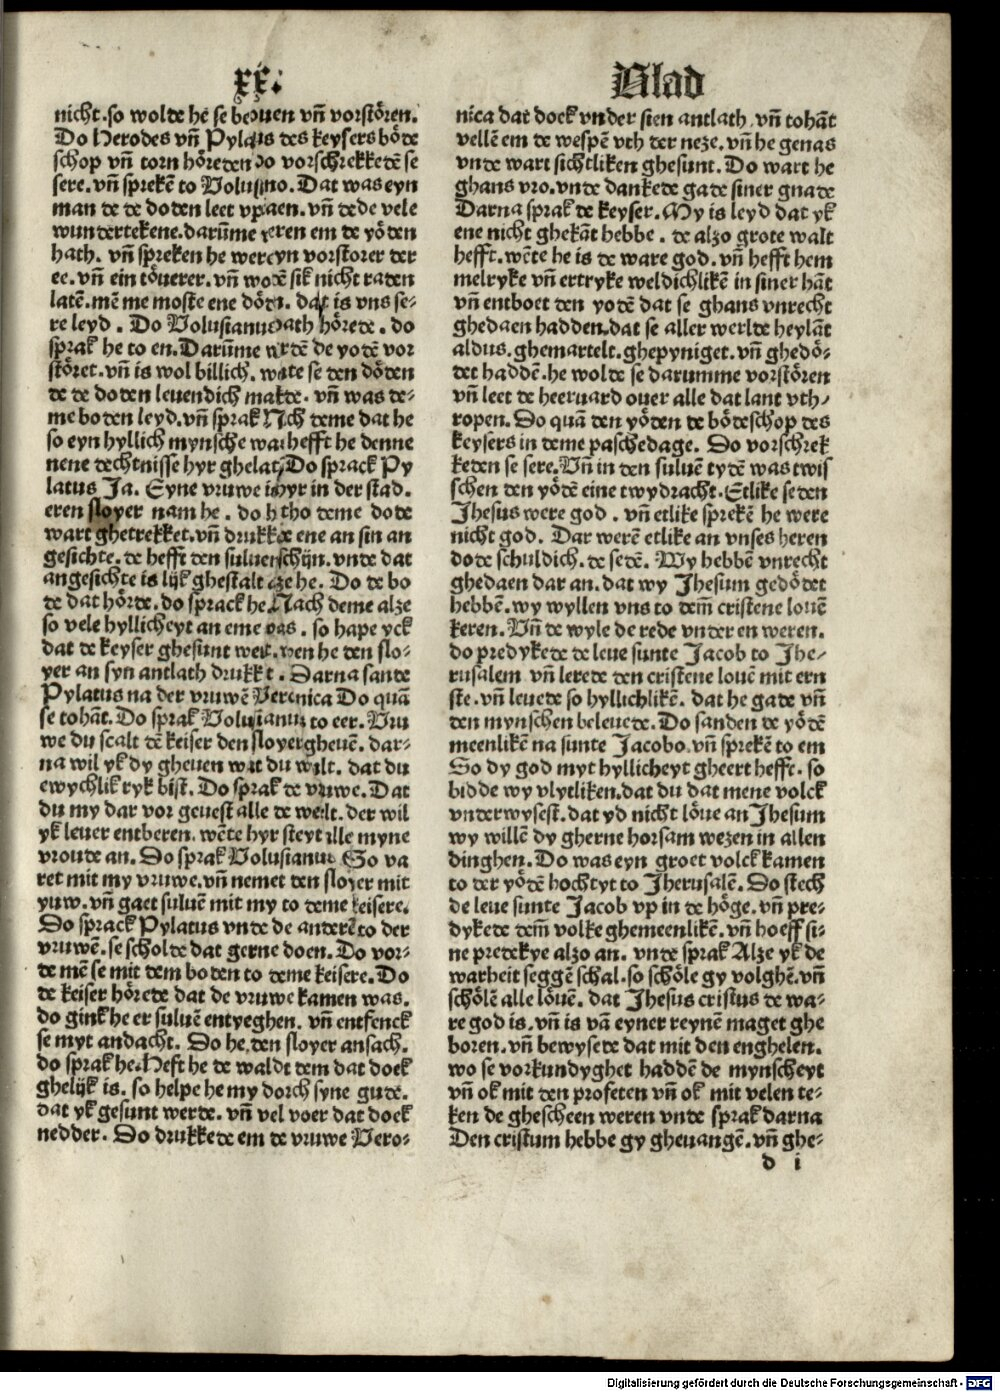 xx. Blad
nicht. so wolde he se bouen vn̄ vorstören.
Do Herodes vn̄ Pylatus des keysers böde
schop vn̄ torn höreden do vorschrekkedē se
sere. vn̄ sprekē to Volusiano. Dat was eyn
man de de doden leet vpstaen. vn̄ dede vele
wundertekene. darūme weren em de yöden
hath. vn̄ spreken he were eyn vorstorer der
ee. vn̄ ein töuerer. vn̄ woldē sik nicht raden
latē. mē me moste ene dödē. dat is vns se-
re leyd. Do Volusianus dath hörede. do
sprak he to en. Darūme werdē de yodē vor
störet. vn̄ is wol billich. wente se den döden
de de doden leuendich makde. vn̄ was de-
me boden leyd. vn̄ sprak Nch deme dat he
so eyn hyllich mynsche was hefft he denne
nene dechtnisse hyr ghelatē Do sprack Py
latus Ja. Eyne vruwe is hyr in der stad.
eren sloyer nam he. do he tho deme dode
wart ghetrekket. vn̄ drukkede ene an sin an
gesichte. de hefft den suluen schijn. vnde dat
angesichte is lijk ghestalt alze he. Do de bo
de dat hörde. do sprack he Nach deme alze
so vele hyllicheyt an eme was. so hape yck
dat de keyser ghesunt wert. wen he den slo-
yer an syn antlath drukket. Darna sande
Pylatus na der vruwē Veronica Do quā
se tohāt. Do sprak Volusianus to eer. Vru
we du scalt dē keiser den sloyer gheuē. dar-
na wil yk dy gheuen wat du wilt. dat du
ewychlik ryk bist. Do sprak de vruwe. Dat
du my dar vor geuest alle de werlt. der wil
yk leuer entberen. wēte hyr steyt alle myne
vroude an. Do sprak Volusianus So va
ret mit my vruwe. vn̄ nemet den sloyer mit
yuw. vn̄ gaet suluē mit my to deme keisere.
Do sprack Pylatus vnde de anderē to der
vruwē. se scholde dat gerne doen. Do vor-
de mē se mit dem boden to deme keisere. Do
de keiser hörede dat de vruwe kamen was.
do gink he er suluē entyeghen. vn̄ entfenck
se myt andacht. Do he den sloyer ansach.
do sprak he. Heft he de waldt dem dat doek
ghelijk is. so helpe he my dorch syne gude.
dat yk gesunt werde. vn̄ vel voer dat doek
nedder. Do drukkede em de vruwe Vero-
nica dat doek vnder sien antlath. vn̄ tohāt
vellē em de wespē vth der neze. vn̄ he genas
vnde wart sichtliken ghesunt. Do wart he
ghans vro. vnde dankede gade siner gnade
Darna sprak de keyser. My is leyd dat yk
ene nicht ghekāt hebbe. de alzo grote walt
hefft. wēte he is de ware god. vn̄ hefft hem
melryke vn̄ ertryke weldichlikē in siner hāt
vn̄ entboet den yodē dat se ghans vnrecht
ghedaen hadden. dat se aller werlde heylāt
aldus. ghemartelt. ghepyniget. vn̄ ghedö-
det haddē. he wolde se darumme vorstören
vn̄ leet de heeruard ouer alle dat lant vth-
ropen. Do quā den yöden de bödeschop des
keysers in deme paschedage. Do vorschrek
keden se sere. Vn̄ in den suluē tydē was twis
schen den yödē eine twydracht. Etlike seden
Jhesus were god. vn̄ etlike sprekē he were
nicht god. Dar werē etlike an vnses heren
dode schuldich. de sedē. Wy hebbē vnrecht
ghedaen dar an. dat wy Jhesum gedödet
hebbē. wy wyllen vns to dem̄ cristene louē
keren. Vn̄ de wyle de rede vnder en weren.
do predykede de leue sunte Jacob to Jhe-
rusalem vn̄ lerede den cristene louē mit ern
ste. vn̄ leuede so hyllichlikē. dat he gade vn̄
den mynschen beleuede. Do sanden de yödē
meenlikē na sunte Jacobo. vn̄ sprekē to em
So dy god myt hyllicheyt gheert hefft. so
bidde wy vlytliken. dat du dat mene volck
vnderwysest. dat yd nicht löue an Jhesum
wy willē dy gherne horsam wezen in allen
dinghen. Do was eyn groet volck kamen
to der yödē hochtyt to Jherusalē. Do stech
de leue sunte Jacob vp in de höge. vn̄ pre-
dykede dem̄ volke ghemeenlikē. vn̄ hoeff si-
ne predekye alzo an. vnde sprak Alze yk de
warheit seggē schal. so schöle gy volghē. vn̄
schölē alle löuē. dat Jhesus cristus de wa-
re god is. vn̄ is vā eyner reynē maget ghe
boren. vn̄ bewysede dat mit den enghelen.
wo se vorkundyghet haddē de mynscheyt
vn̄ ok mit den profeten vn̄ ok mit velen te-
ken de ghescheen weren vnde sprak darna
Den cristum hebbe gy gheuangē. vn̄ ghe-
d i
Digitalisierung gefördert durch die Deutsche Forschungsgemeinschaft - DFG